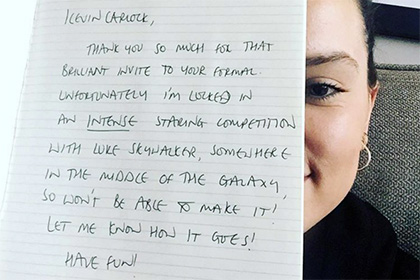 KEVIN CARLOCK,
THANK YOU SO MUCH FOR THAT
BRILLIANT INVITE TO YOUR FORMAL.
UNFORTUNATELY I'M LOCKED IN
AN INTENSE STARING COMPETITION
WITH LUKE SKYWALKER, SOMEWHERE
IN THE MIDDLE OF THE GALAXY,
SO WON'T BE ABLE TO MAKE IT!
LET ME KNOW HOW IT GOES!
HAVE FUN!